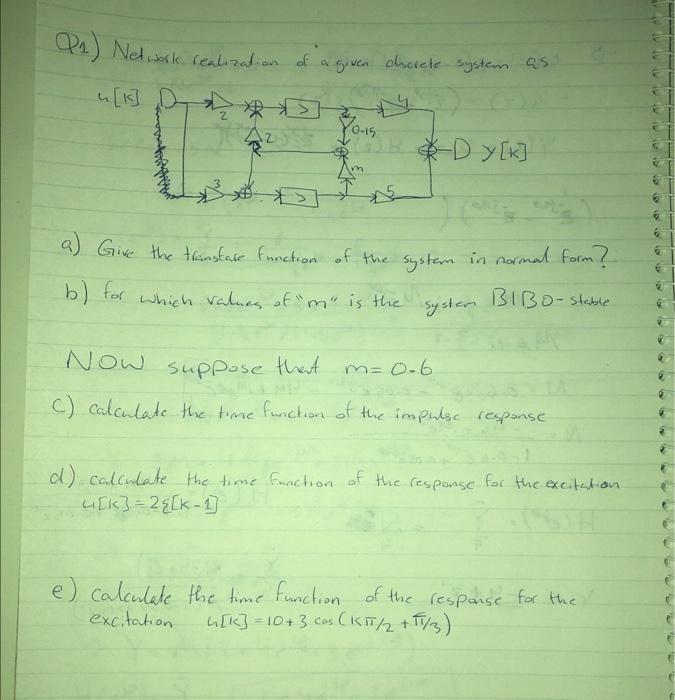 Q1) Network realization of a given discrete system as
u[k] D 2 > 4
0.15
2 D y[k]
m
3 > 5
a) Give the transfare function of the system in normal form?
b) for which values of "m" is the system BIBO-stable
NOW suppose that m=0.6
C) calculate the time function of the impulse response
d) calculate the time function of the response for the excitation
u[k]=2ξ[k-1]
e) calculate the time function of the response for the
excitation u[k] = 10+3 cos (kπ/2 + π/3)